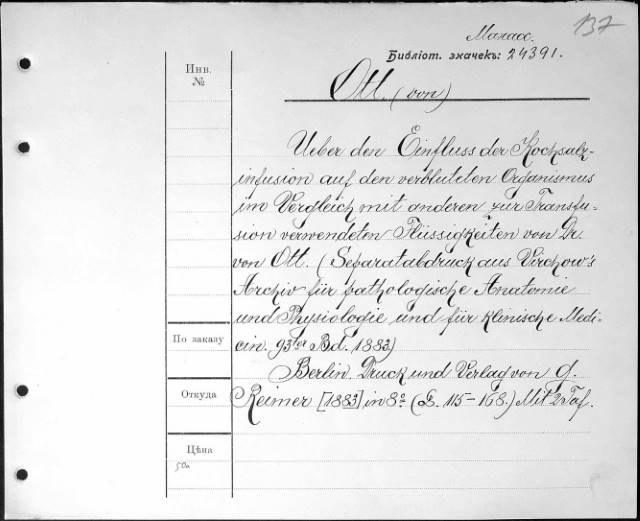 137
Малах.
Библіот. значекъ: 24391.
Инв.
№
Ott. (von)
Ueber den Einfluss der Kochsalz-
infusion auf den verbluteten Organismus
im Vergleich mit anderen zur Transfu-
sion verwendeten Flüssigkeiten von Dr.
von Ott. (Separatabdruck aus Virchow's
Archiv für pathologische Anatomie
und Physiologie und für klinische Medi-
cin. 93ter Bd. 1883)
По заказу
Berlin. Druck und Verlag von G.
Откуда
Reimer [1883] in 8º (S. 115-168.) Mit 2 Taf.
Цѣна